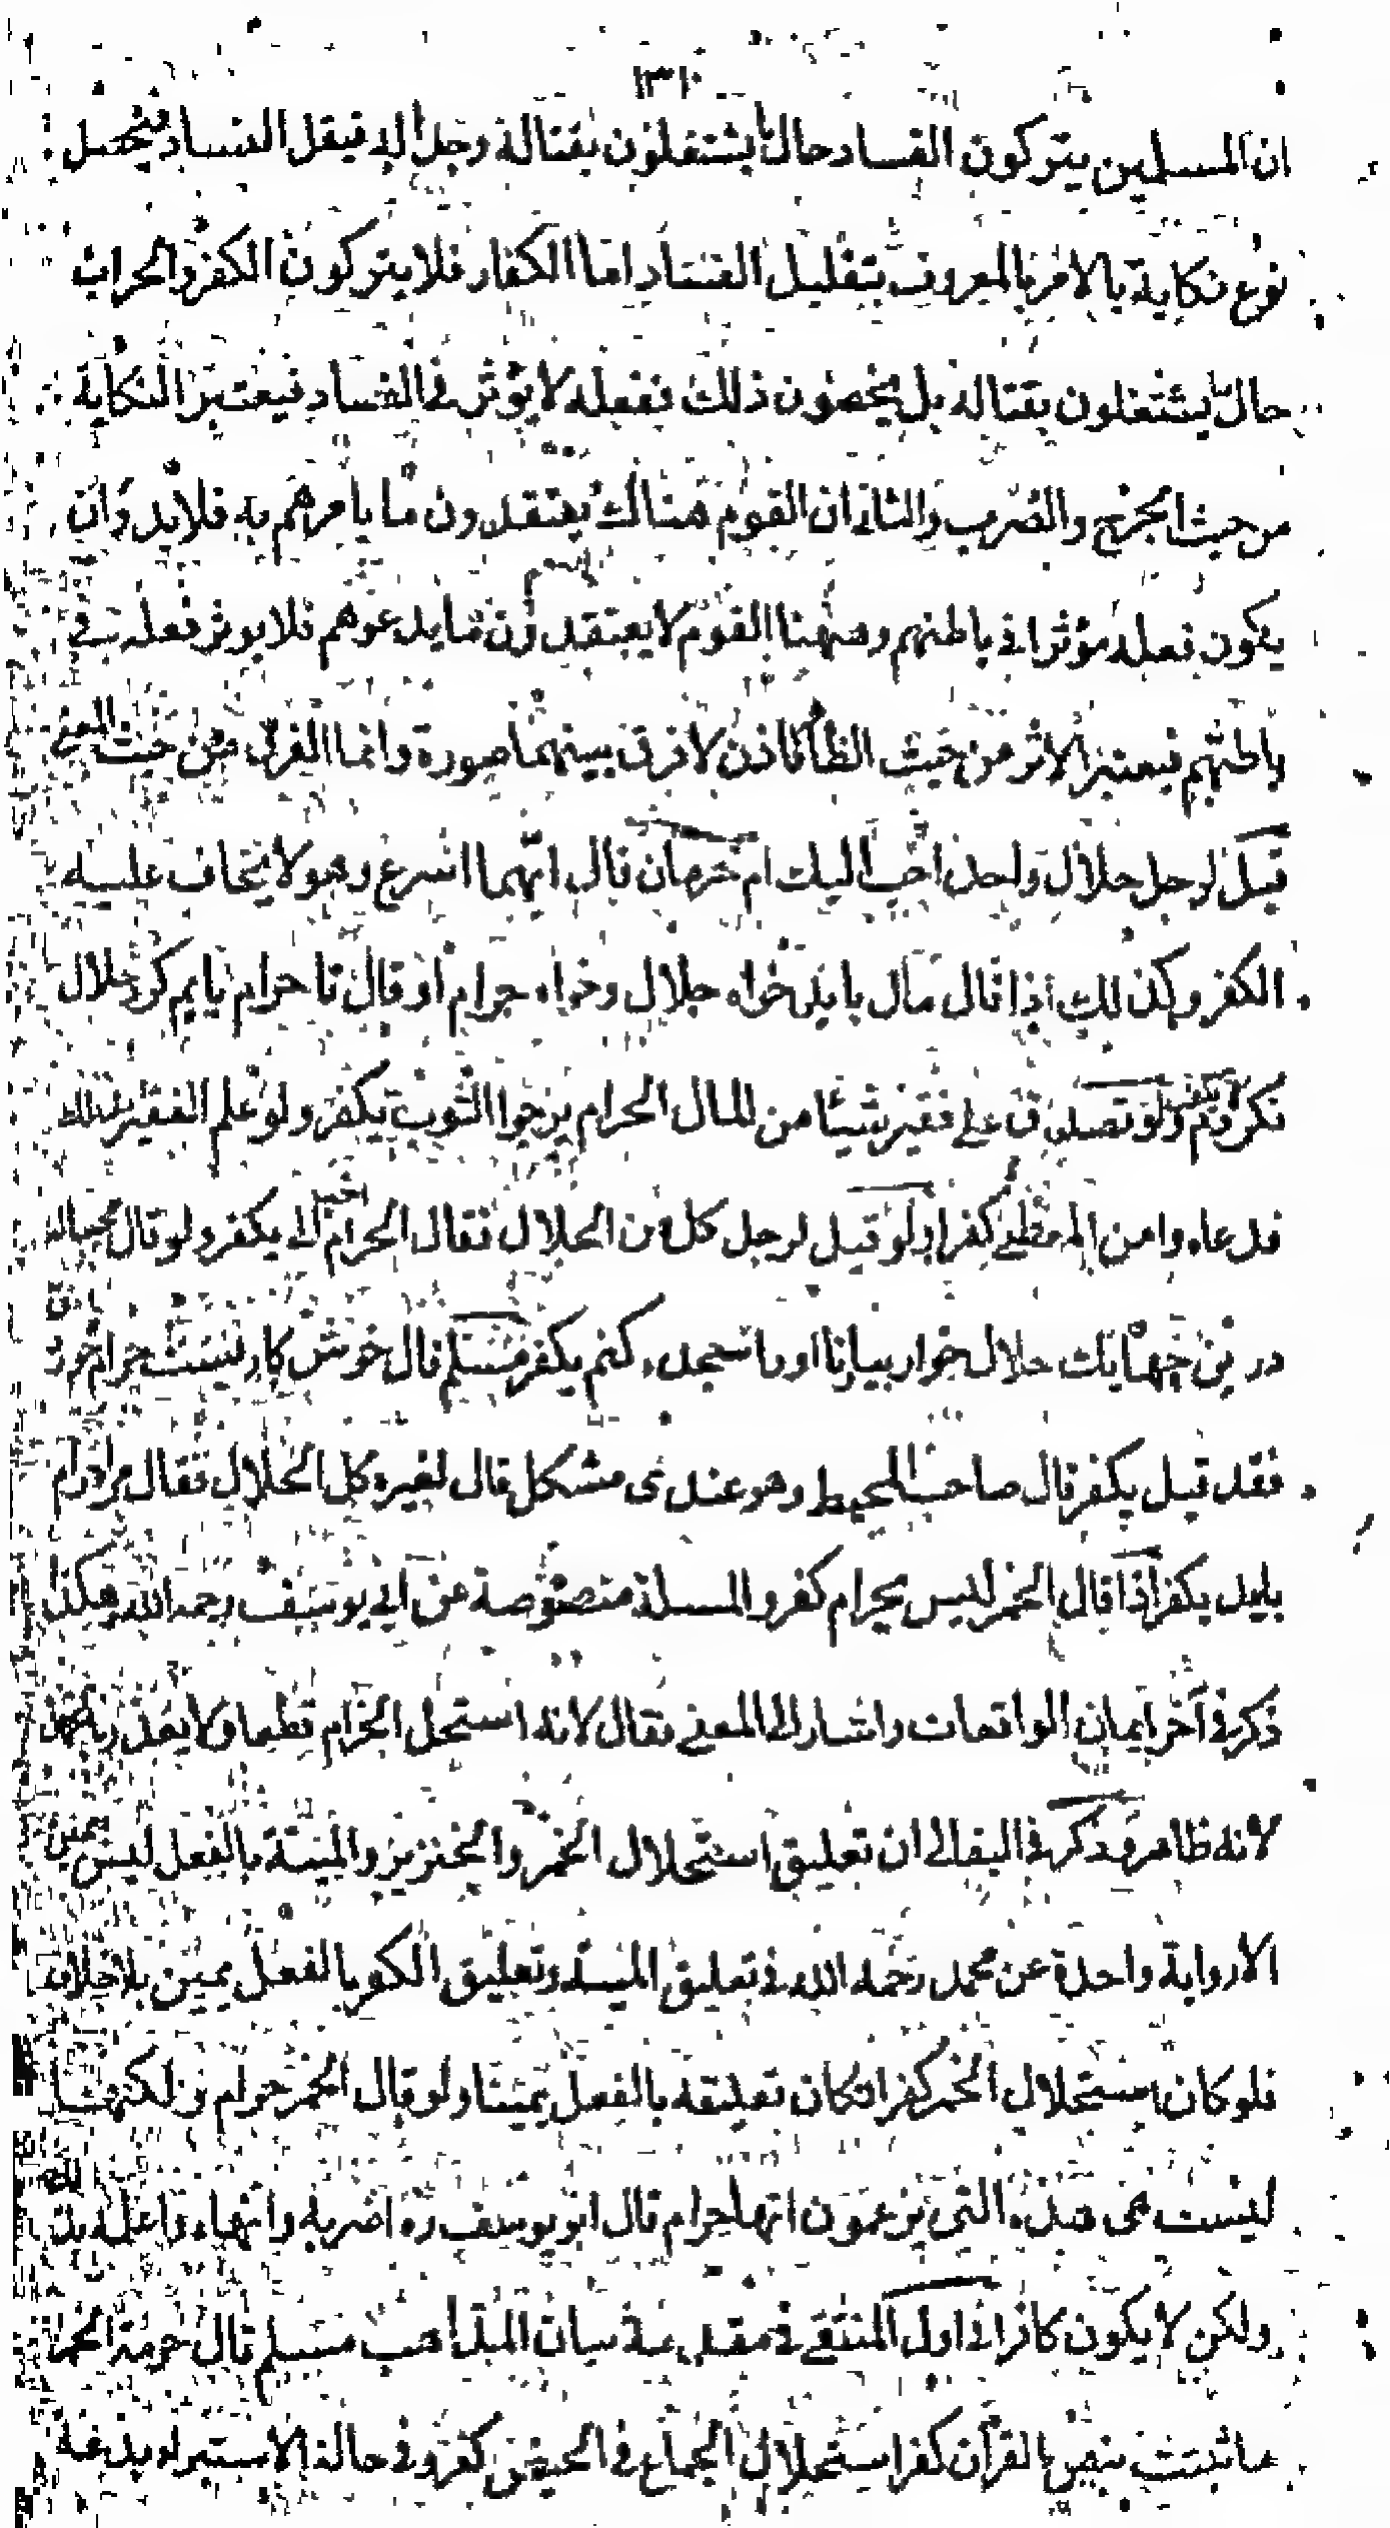 ١٣١٠
ان المسلمين يتركون الفساد حال ما يشتغلون بقتاله رجل اليه فيقل الفساد فيحصل
نوع نكاية بالامر بالمعروف بتقليل الفساد اما الكفار فلا يتركون الكفر والحراب
حال ما يشتغلون بقتاله بل يخصون ذلك ففعله لا يؤثر في الفساد فيعتبر النكاية
من حيث الجرح والضرب والثاني ان القوم هناك يعتقدون ما يامرهم به فلا بد وان
يكون فعله مؤثرا في باطنهم وههنا القوم لا يعتقدون ما يدعوهم اليه فلا يوثر فعله في
باطنهم فيعتبر الاثر من حيث الظاهر اذن لا فرق بينهما صورة وانما الفرق من حيث المعنى
قيل لرجل حلال واحد احب اليك ام حرمان قال ايهما اسرع وهو لا يخاف عليه
الكفر وكذلك اذا قال مال بايد خواه حلال وخواه حرام او قال تا حرام يابم كرد حلال
نكردم لا يكفر ولو تصدق على فقير شيئا من المال الحرام يرجوا الثوب يكفر ولو علم الفقير بذلك
فدعاه وامن المعطي كفرا ولو قيل لرجل كل من الحلال فقال الحرام احب الي يكفر ولو قال مجيبا له
درين جهان يك حلال خوار بيار تا او را سجده كنم يكفر مسلم قال خوش كاريست حرام خورد
فقد قيل يكفر قال صاحب المحيط وهو عندي مشكل قال لغيره كل الحلال فقال مرا حرام
بايد يكفر اذا قال الخمر ليس بحرام كفر والمسلة منصوصة عن ابي يوسف رحمه الله وهكذا
ذكر في آخر ايمان الواقعات واشار الى المعنى فقال لانه استحل الحرام قطعا ولا يعذر بالجهل
لانه ظاهر وذكر في البقالي ان تعليق استحلال الخمر والخنزير والميتة بالفعل ليس بيمين
الا رواية واحدة عن محمد رحمه الله في تعليق الميتة وتعليق الكفر بالفعل يمين بلا خلاف
فلو كان استحلال الخمر كفرا لكان تعليقه بالفعل يمينا ولو قال الخمر حرام ولكنها
ليست هي هذه التي يزعمون انها حرام قال ابو يوسف ره اضربه وانهاه واعلمه بذلك
ولكن لا يكون كافرا في اول المنتقى في مقدمة بيان المذاهب مسلم قال حرمة الخمر
ما ثبتت بنص القرآن كفر استحلال الجماع في الحيض كفر وفي حالة الاستبراء بدعة